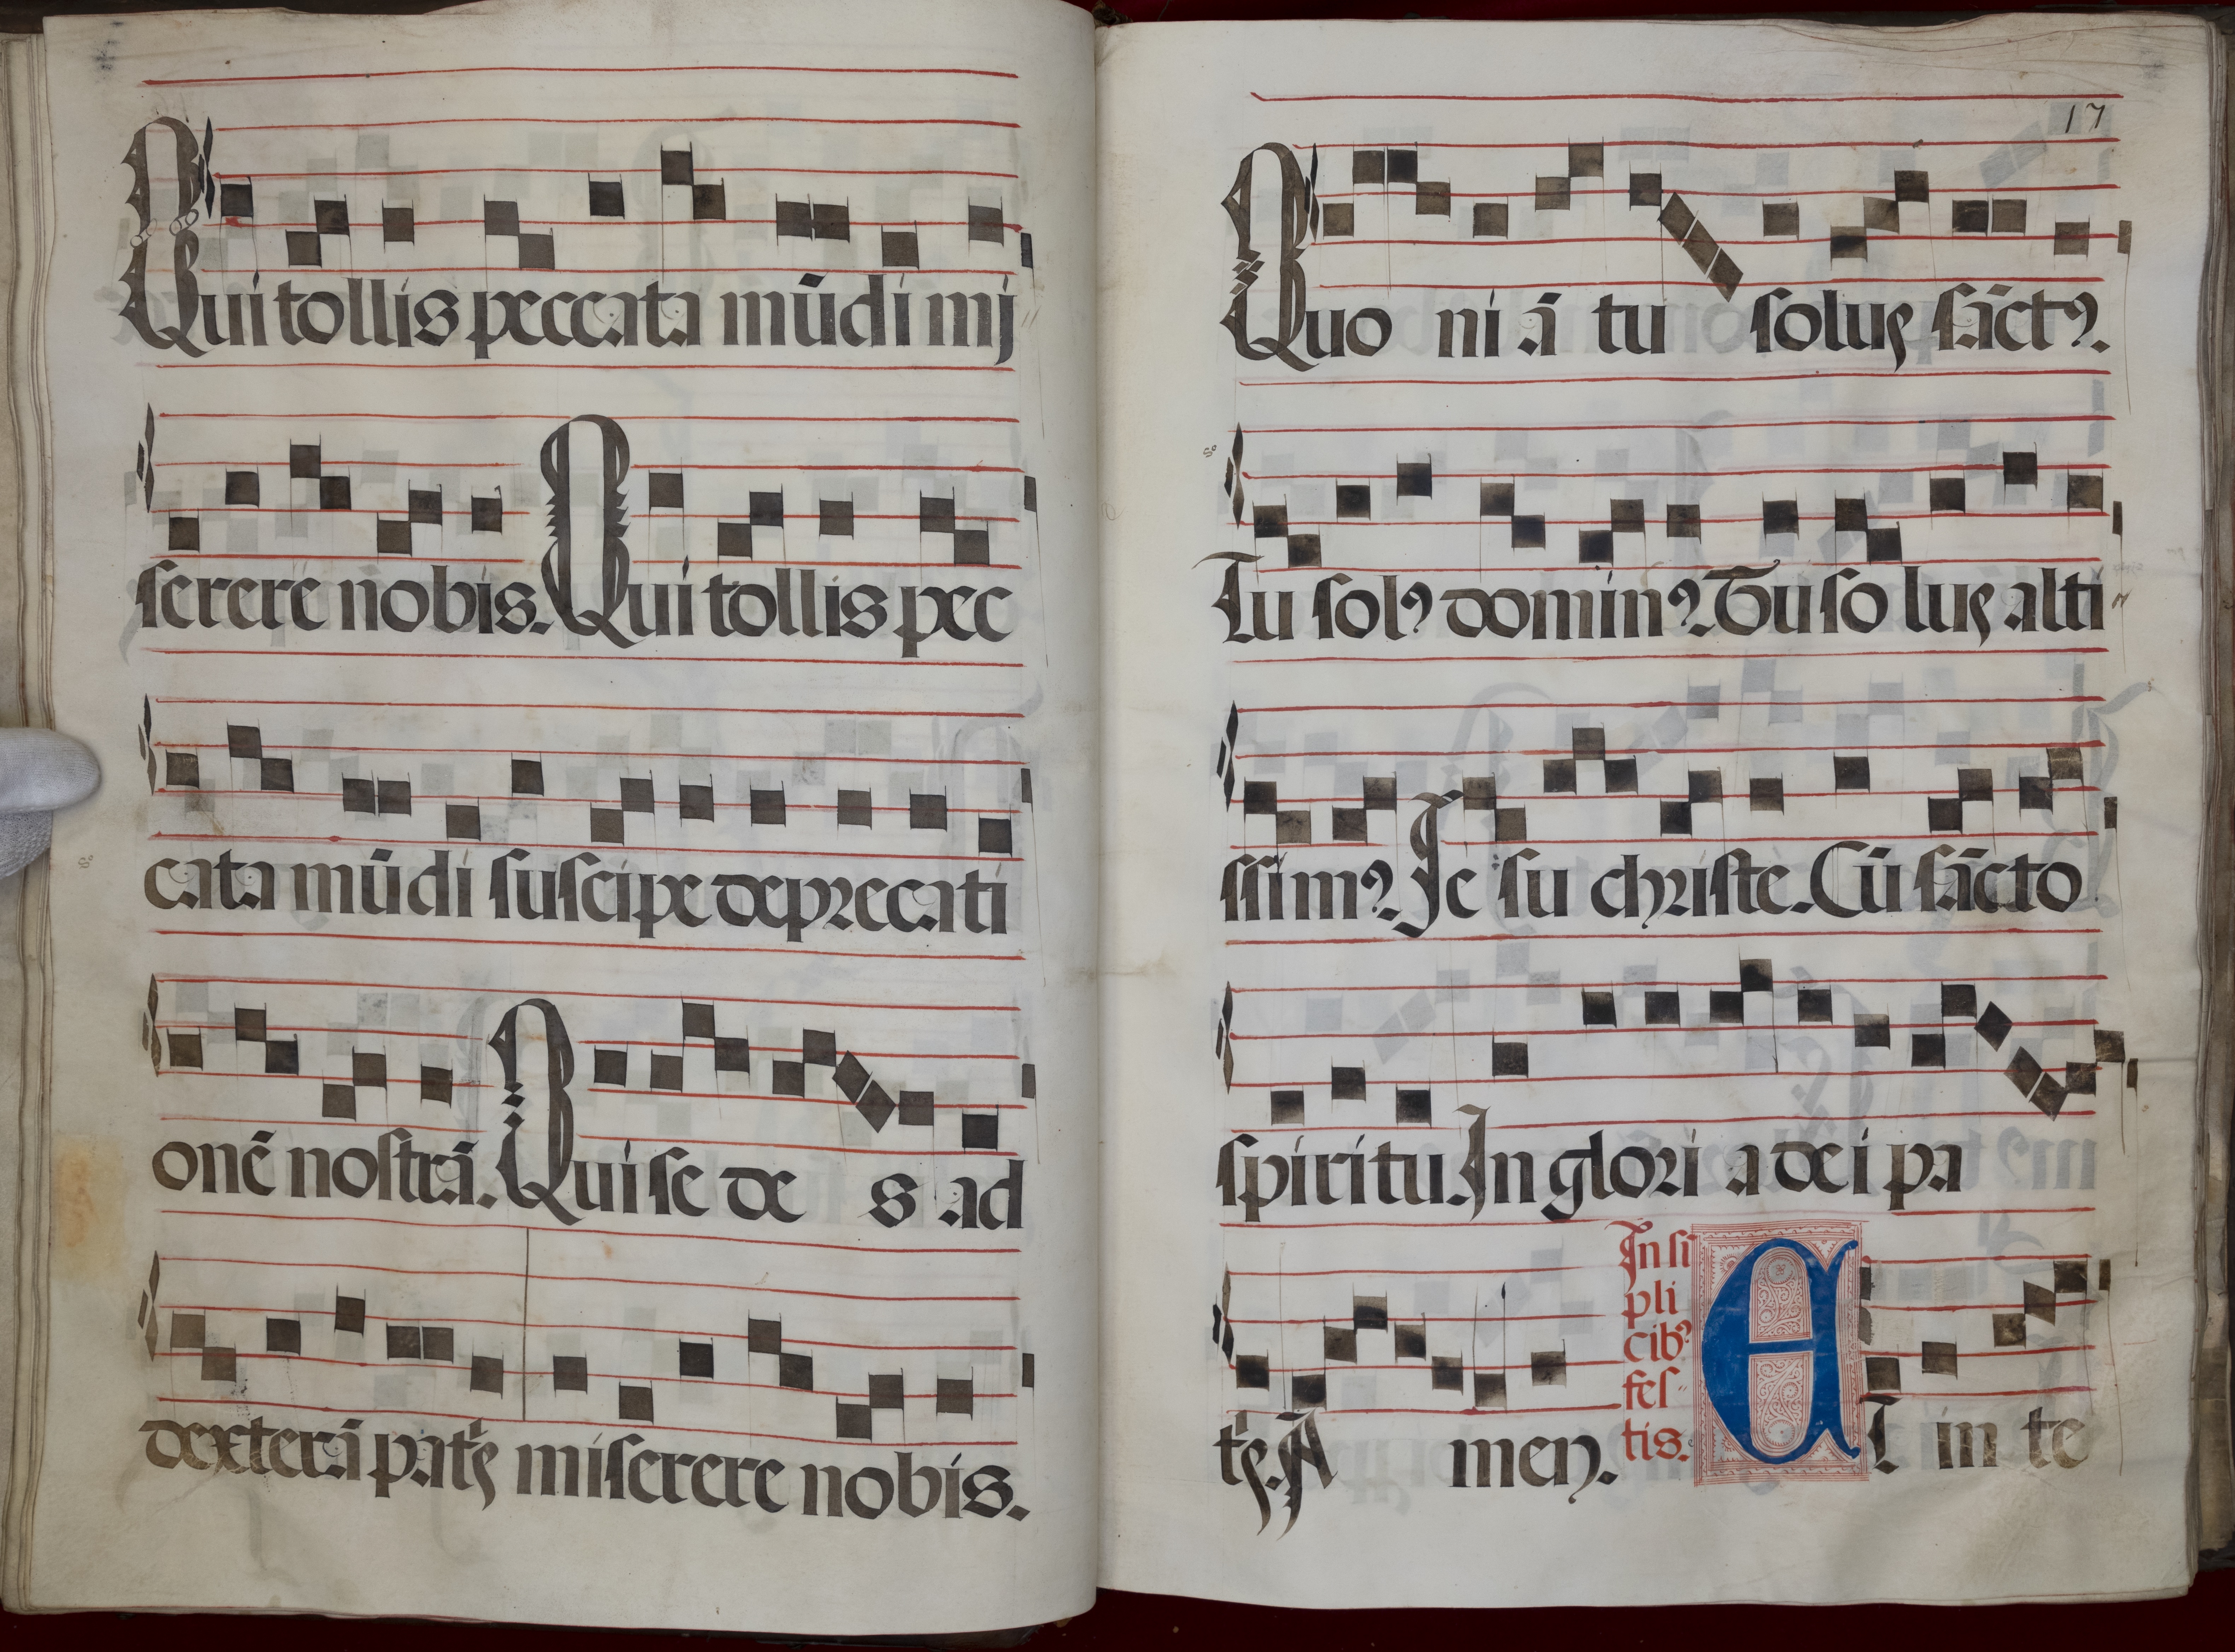 Qui tollis peccata mūdi mi
serere nobis. Qui tollis pec
cata mūdi suscipe deprecati
onē nostrā. Qui se de s ad
dexterā patꝭ miserere nobis.
17
Quo ni ā tu solus sāctꝰ.
Tu solꝰ dominꝰ. Tu so lus alti
ssimꝰ. Je su christe. Cū sācto
spiritu. In glori a dei pa
tꝭ. A men. In si
pli
cibꝰ
fes-
tis. ET in te